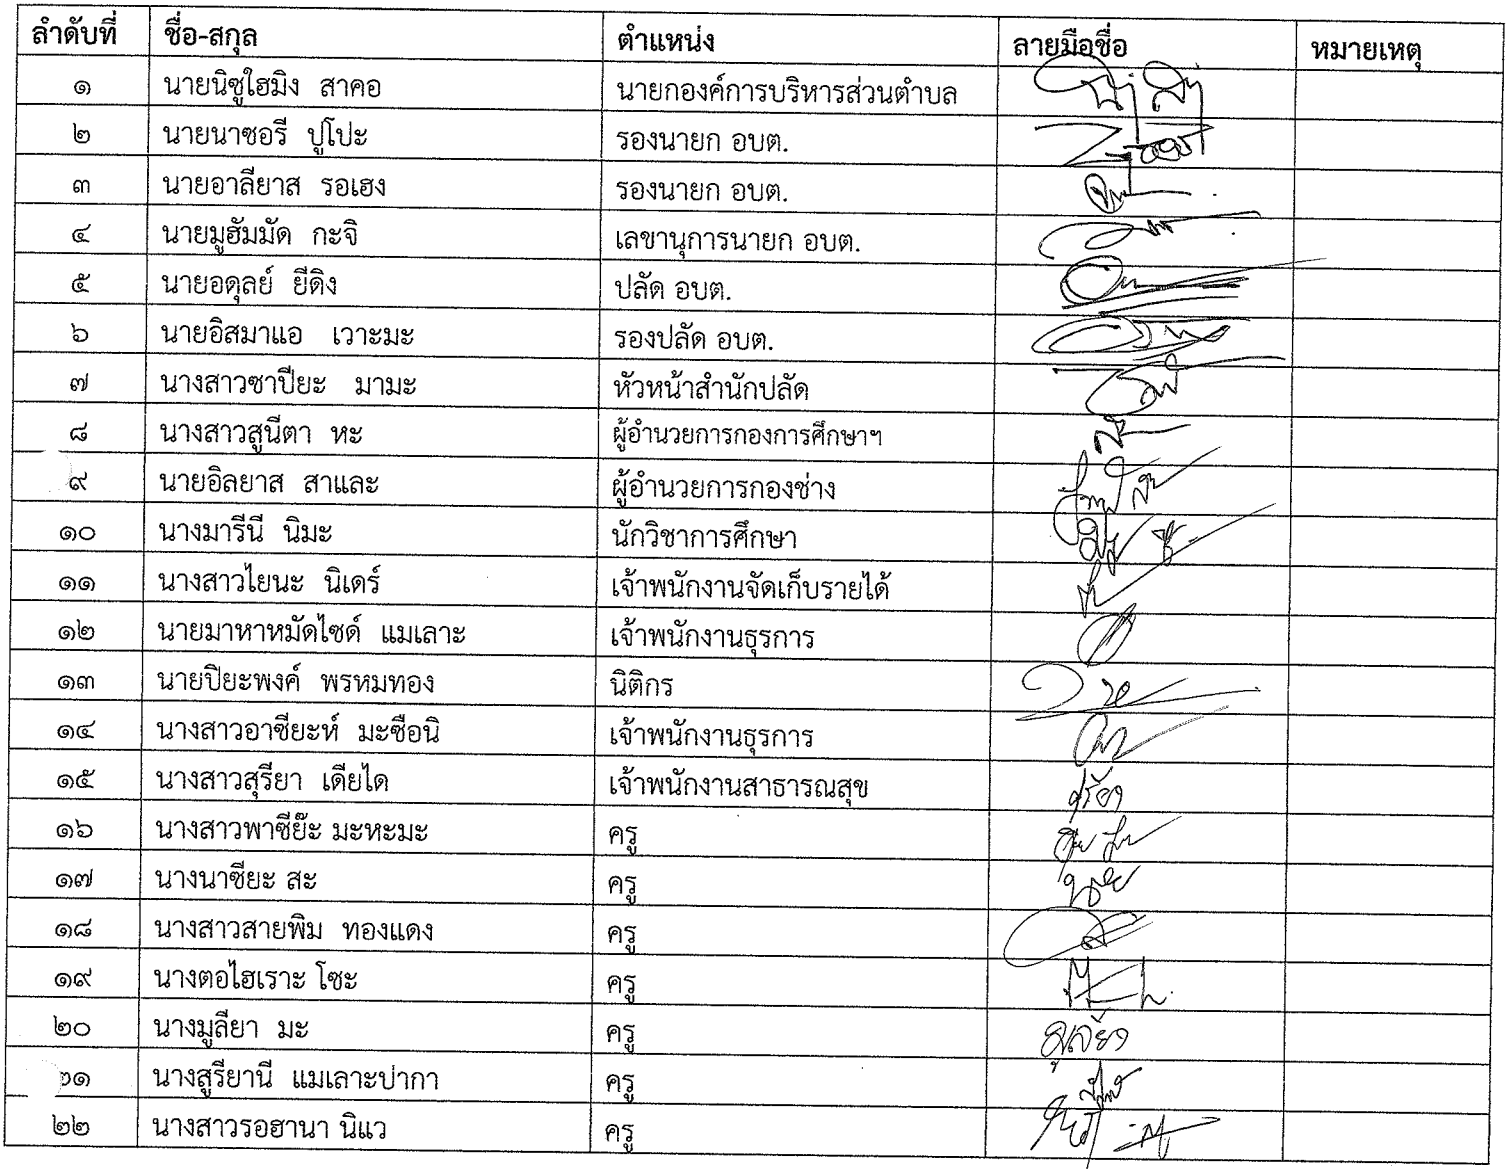 ลำดับที่ ชื่อ-สกุล ตำแหน่ง ลายมือชื่อ หมายเหตุ
๑ นายนิซูไฮมิง สาคอ นายกองค์การบริหารส่วนตำบล
๒ นายนาซอรี ปูโปะ รองนายก อบต.
๓ นายอาลียาส รอเฮง รองนายก อบต.
๔ นายมูฮัมมัด กะจิ เลขานุการนายก อบต.
๕ นายอดุลย์ ยีดิง ปลัด อบต.
๖ นายอิสมาแอ เวาะมะ รองปลัด อบต.
๗ นางสาวซาปียะ มามะ หัวหน้าสำนักปลัด
๘ นางสาวสูนีตา หะ ผู้อำนวยการกองการศึกษาฯ
๙ นายอิลยาส สาและ ผู้อำนวยการกองช่าง
๑๐ นางมารีนี นิมะ นักวิชาการศึกษา
๑๑ นางสาวไยนะ นิเดร์ เจ้าพนักงานจัดเก็บรายได้
๑๒ นายมาหาหมัดไซด์ แมเลาะ เจ้าพนักงานธุรการ
๑๓ นายปิยะพงค์ พรหมทอง นิติกร
๑๔ นางสาวอาซียะห์ มะซือนิ เจ้าพนักงานธุรการ
๑๕ นางสาวสุรียา เดียได เจ้าพนักงานสาธารณสุข
๑๖ นางสาวพาซีย๊ะ มะหะมะ ครู
๑๗ นางนาซียะ สะ ครู
๑๘ นางสาวสายพิม ทองแดง ครู
๑๙ นางตอไฮเราะ โซะ ครู
๒๐ นางมูลียา มะ ครู
๒๑ นางสูรียานี แมเลาะปากา ครู
๒๒ นางสาวรอฮานา นิแว ครู